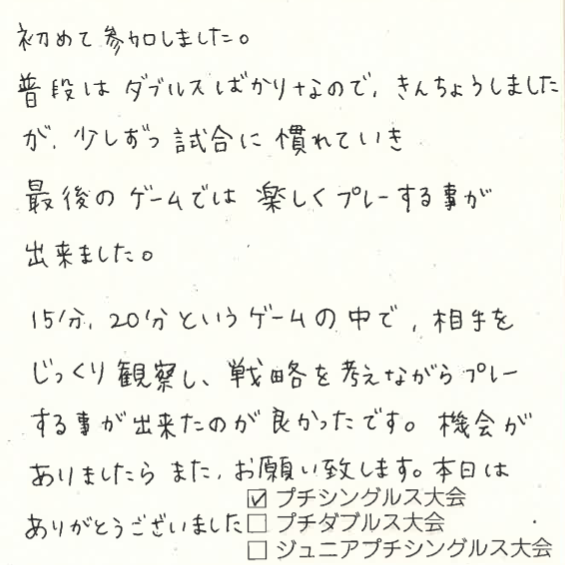 初めて参加しました。
普段はダブルスばかりなので、きんちょうしました
が、少しずつ試合に慣れていき
最後のゲームでは楽しくプレーする事が
出来ました。
15分、20分というゲームの中で、相手を
じっくり観察し、戦略を考えながらプレー
する事が出来たのが良かったです。機会が
ありましたらまた、お願い致します。本日は
ありがとうございました
☑ プチシングルス大会
□ プチダブルス大会
□ ジュニアプチシングルス大会